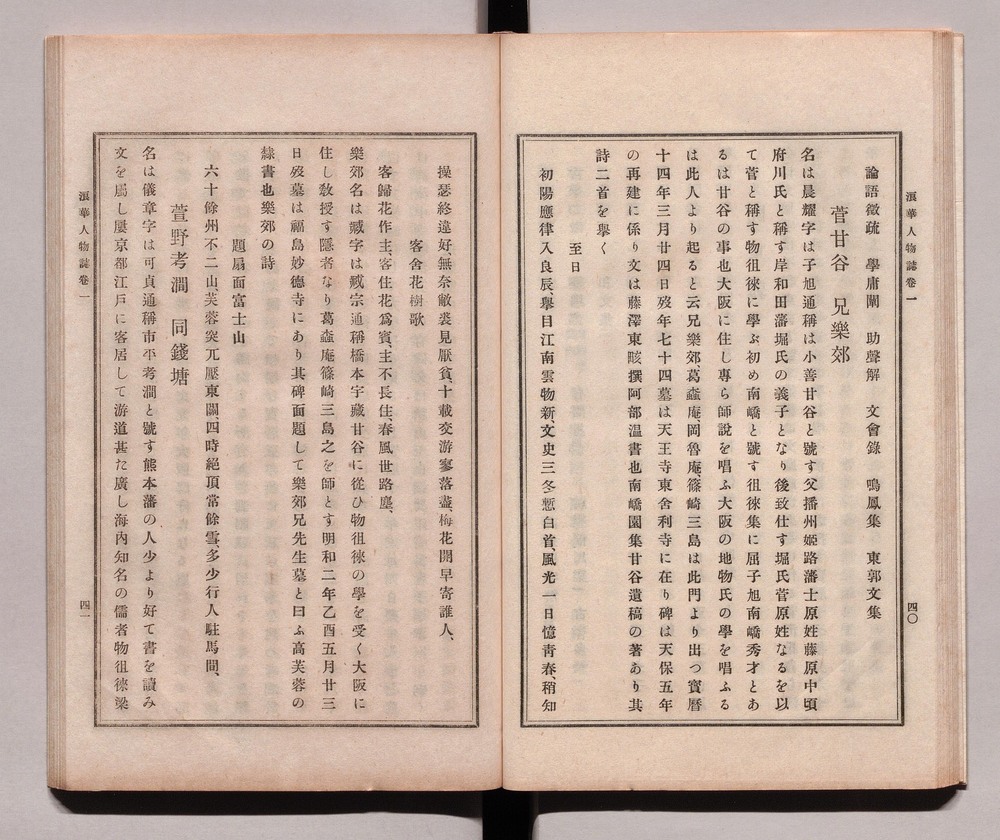 浪華人物誌卷一
四〇
論語徵疏　學庸闡　助聲解　文會錄　鳴鳳集　東郭文集
菅甘谷　兄樂郊
名は晨耀字は子旭通稱は小善甘谷と號す父播州姬路藩士原姓藤原中頃
府川氏と稱す岸和田藩堀氏の義子となり後致仕す堀氏菅原姓なるを以
て菅と稱す物徂徠に學ぶ初め南嶠と號す徂徠集に屈子旭南嶠秀才とあ
るは甘谷の事也大阪に住し專ら師說を唱ふ大阪の地物氏の學を唱ふる
は此人より起ると云兄樂郊葛蠧庵岡魯庵篠崎三島は此門より出つ寶曆
十四年三月廿四日歿年七十四墓は天王寺東舍利寺に在り碑は天保五年
の再建に係り文は藤澤東畡撰阿部温書也南嶠園集甘谷遺稿の著あり其
詩二首を擧く
至日
初陽應律入良辰、擧目江南雲物新文史三冬慙白首、風光一日憶靑春、稍知
操瑟終違好、無奈敝裘見厭貧、十載交游寥落盡、梅花開早寄誰人、
客舍花樹歌
客歸花作主、客住花爲賓、主不長住春風世路塵、
樂郊名は臧字は臧宗通稱橋本宇藏甘谷に從ひ物徂徠の學を受く大阪に
住し敎授す隱者なり葛蠧庵篠崎三島之を師とす明和二年乙酉五月廿三
日歿墓は福島妙德寺にあり其碑面題して樂郊兄先生墓と曰ふ高芙蓉の
隸書也樂郊の詩
題扇面富士山
六十餘州不二山、芙蓉突兀壓東關、四時絕頂常餘雪、多少行人駐馬間、
萱野考澗　同錢塘
名は儀章字は可貞通稱市平考澗と號す熊本藩の人少より好て書を讀み
文を屬し屢京都江戶に客居して游道甚た廣し海內知名の儒者物徂徠梁
浪華人物誌卷一
四一